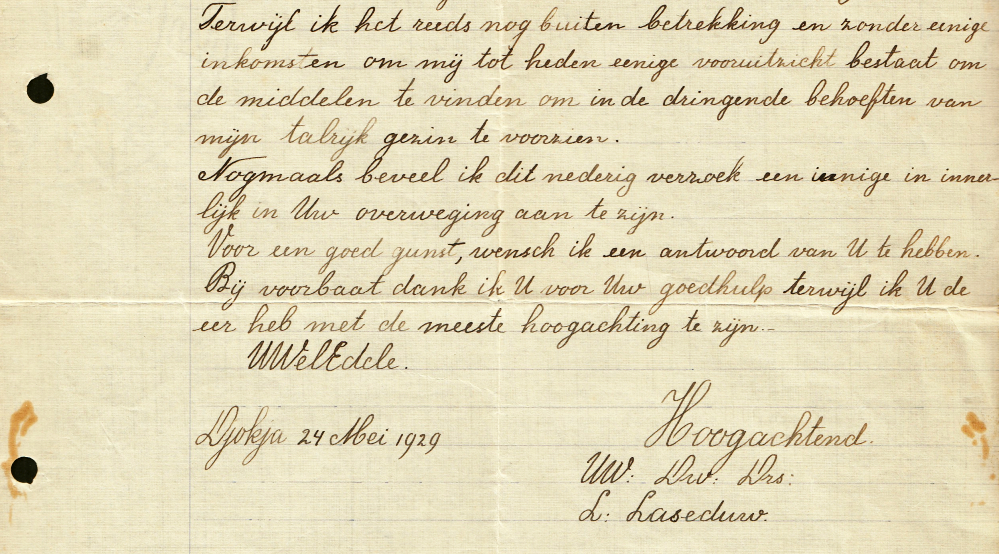 Terwijl ik het reeds nog buiten betrekking en zonder eenige
inkomsten om mij tot heden eenige vooruitzicht bestaat om
de middelen te vinden om in de dringende behoeften van
mijn talrijk gezin te voorzien.
Nogmaals beveel ik dit nederig verzoek een innige in inner-
lijk in Uw overweging aan te zijn.
Voor een goed gunst, wensch ik een antwoord van U te hebben.
Bij voorbaat dank ik U voor Uw goedhulp terwijl ik U de
eer heb met de meeste hoogachting te zijn.-
UWelEdele.
Djokja 24 Mei 1929
Hoogachtend.
UW: Dw: Drs:
L: Laseduw.